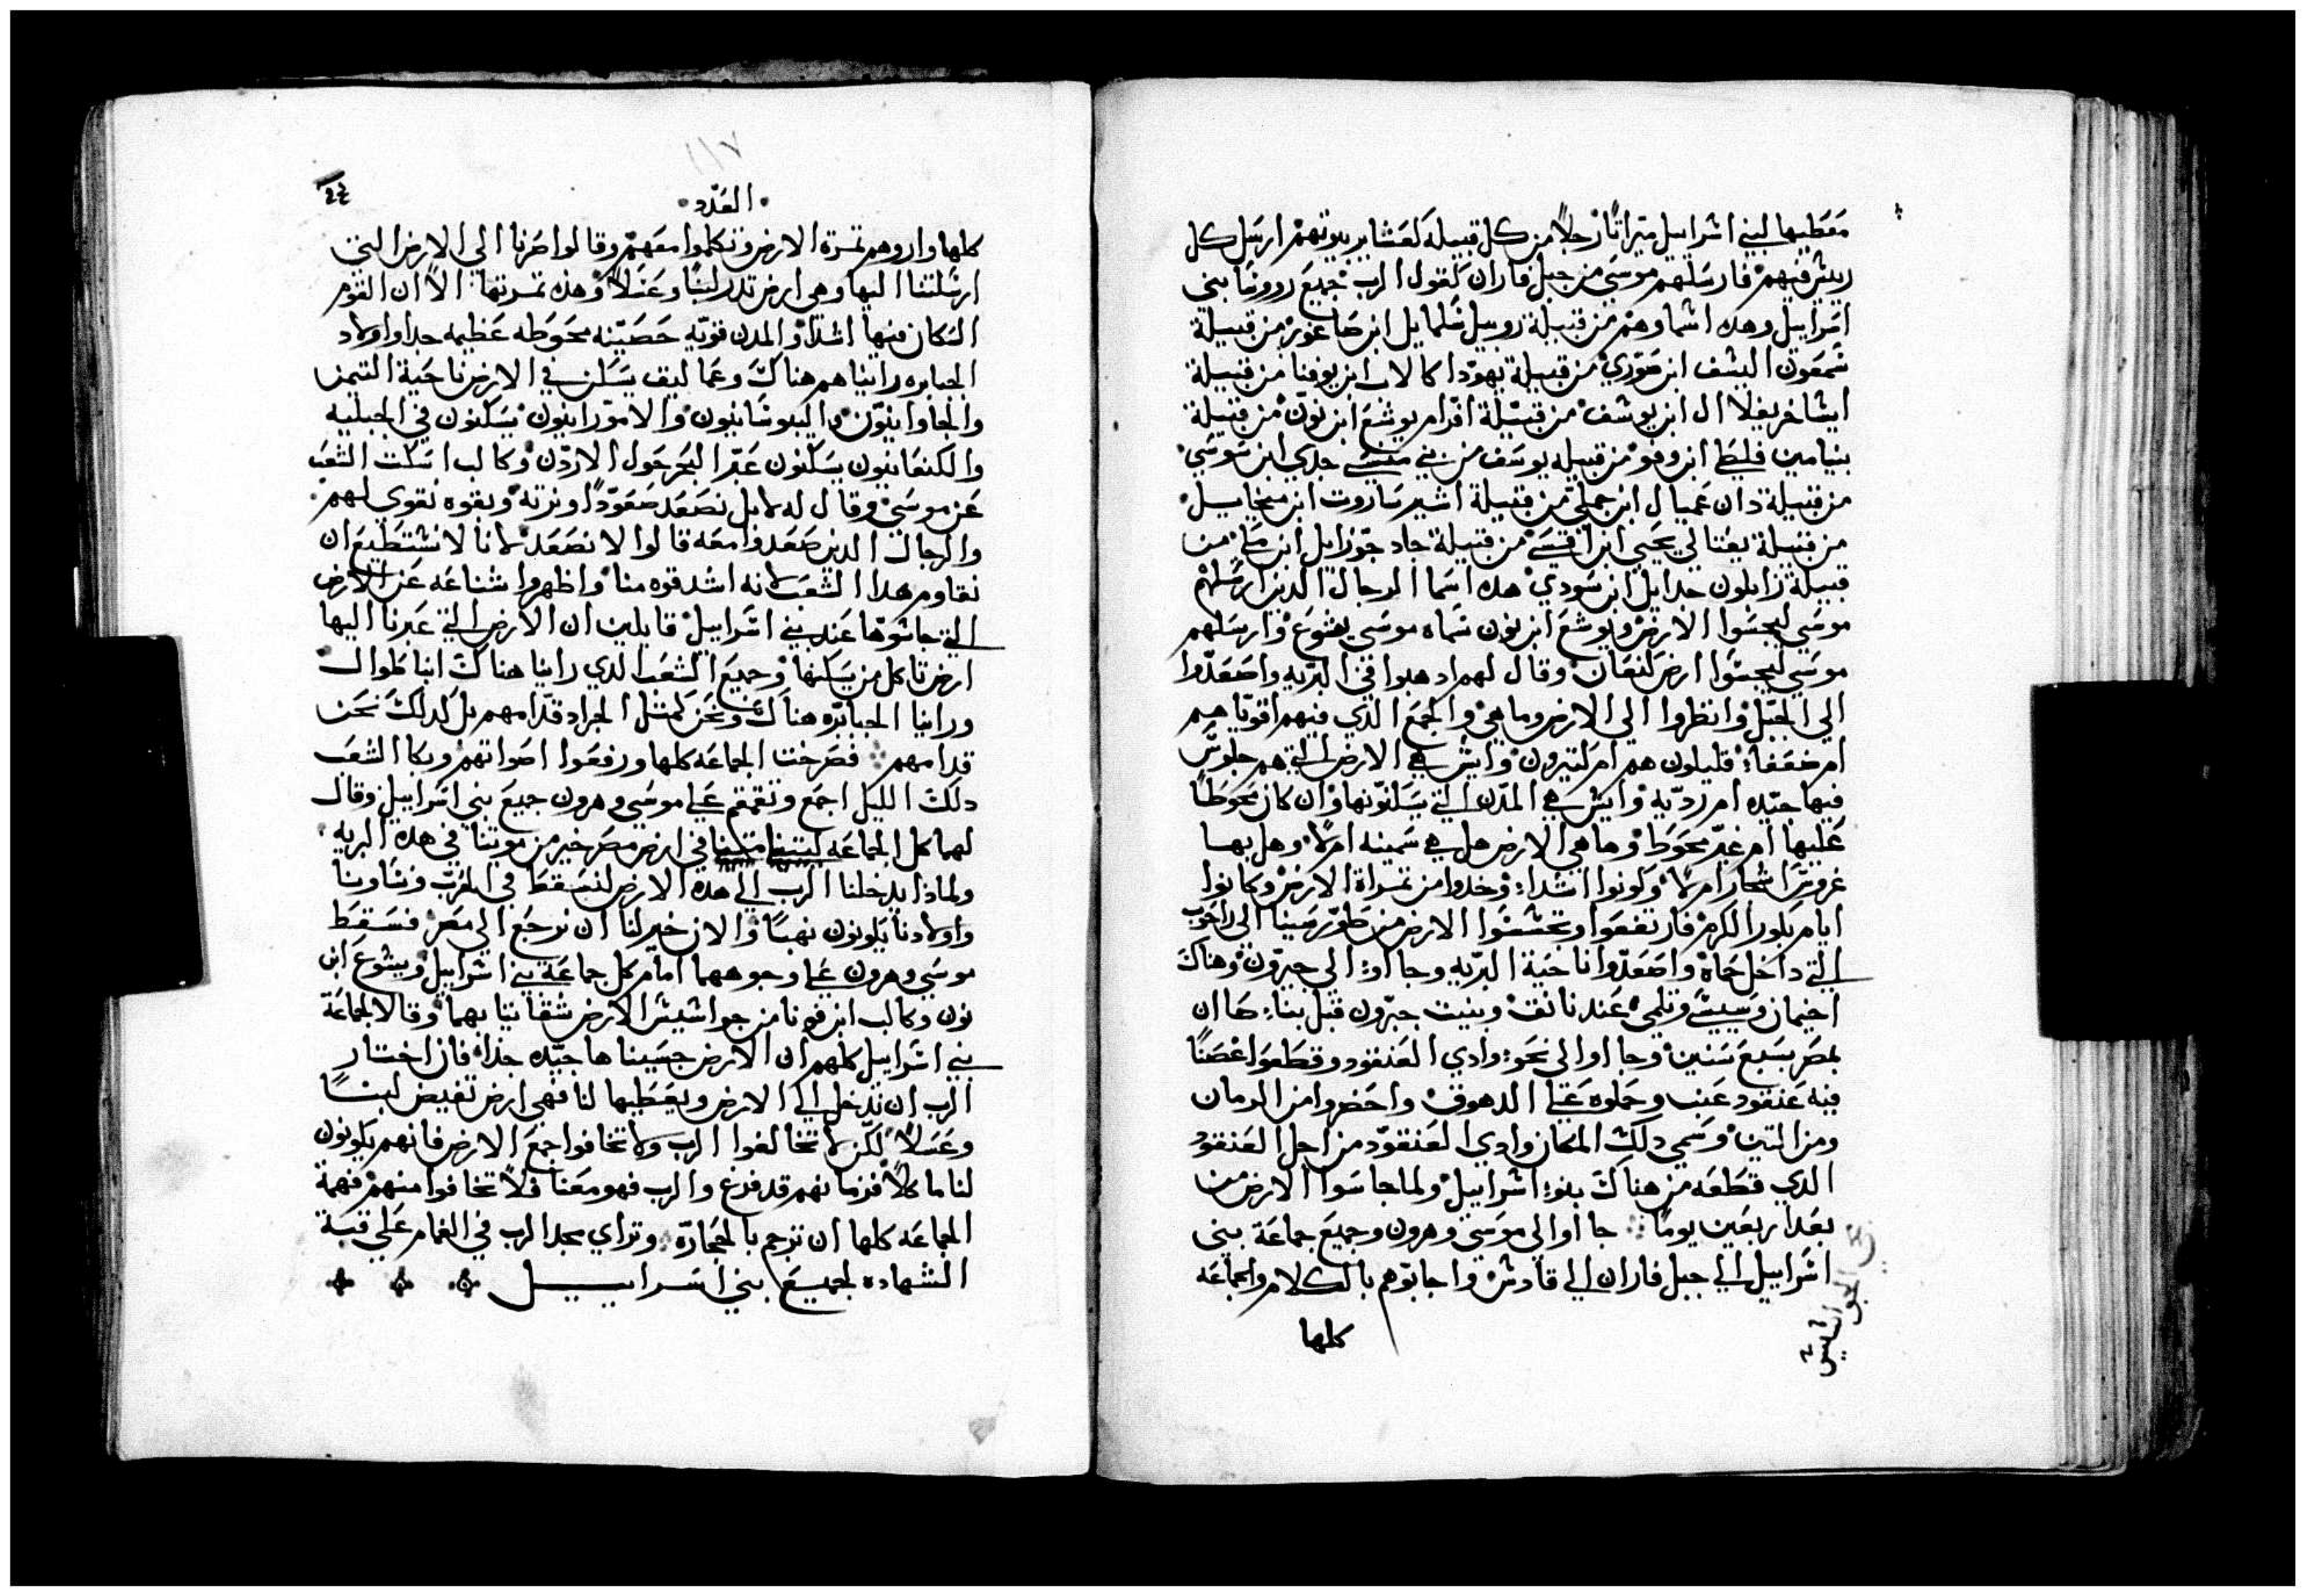 معطيها لبني اسراييل ميراثا رجلاً من كل قبيلة لعشاير بيوتهم ارسل كل
ريس فيهم فارسلهم موسي من جبل فاران كقول الرب جميع رووسا بني
اسراييل وهده اسماوهم من قبيلة روبيل شلمايل ابن من قبيلة
شمعون ابن حوري من قبيلة يهودا كالاب ابن يوفنا من قبيلة
ايساخر يغلاال ابن يوسف من قبيلة افرام يوشع ابن نون من قبيلة
بنيامين فلطي ابن من قبيله يوسف من بني منسي جدي ابن سوسي
من قبيلة دان عميال ابن جملي من قبيلة اشير ساروت ابن ميخاييل
من قبيلة نفتالي يحيي ابن من قبيلة جاد ابن من
قبيلة زابلون جدايل ابن سودي هده اسما الرجال الدين ارسلهم
موسي ليجسوا الارض ويوشع ابن نون سماه موسي يشوع وارسلهم
موسي ليجسوا ارض كنعان وقال لهم ادهبوا في البريه واصعدوا
الي الجبل وانظروا الي الارض وما هي والجمع الدي فيهم اقويا هم
ام ضعفا قليلون هم ام كتيرون وايش هي الارض التي هم جلوس
فيها جيده ام رديه وايش هي المدن التي يسكنونها وان كان محوطاً
عليها ام غير محوط وما هي الارض هل هي سمينه ام لا وهل بها
غروس اشجار ام لا وكونوا اشدا وخدوا من تمراة الارض وكانوا
ايام بكور الكرم فارتفعوا وتجسسوا الارض من طور سينا الي راحوب
التي داخل حماة واصعدوا ناحية البريه وجااوا الي حبرون وهناك
اخيمان وسيسي وتلمي عند وبنيت حبرون قبل بنا صاان
بمصر بسبع سنين وجااوا الي نحو وادي العنقود وقطعوا غصناً
فيه عنقود عنب وحملوه علي الدهوق واحضروا من الرمان
ومن التين وسمي دلك المكان وادي العنقود من اجل العنقود
الدي قطعه من هناك بنو اسراييل ولما جاسوا الارض من
بعد اربعين يوماً جااوا الي موسي وهرون وجميع جماعة بني
اسراييل الي جبل فاران الي قادش واجابوهم بالكلام والجماعه
كلها
الجواسيس
العدد
كلها واروهم تمرة الارض وتكلموا معهم وقالوا صرنا الي الارض التي
ارسلتنا اليها وهي ارض تدر لبنًا وعسلاً وهده تمرتها الا ان القوم
السكان فيها اشدا والمدن قويه حصينه محوطه عظيمه جدا واولاد
الجبابره رايناهم هناك وعماليق يسكن في الارض ناحية التيمن
والحاوانيون واليبوسانيون والامورانيون يسكنون في الجبليه
والكنعانيون يسكنون عبر البحر حول الاردن وكالب اسكت الشعب
عن موسي وقال له لا بل نصعد صعودًا ونرته وبقوه نقوي لهم
والرجال الدين صعدوا معه قالوا لا نصعد لانا لا نستطيع ان
نقاوم هدا الشعب لانه اشد قوه منا واظهروا شناعه عن الارض
التي جاسوها عند بني اسراييل قايلين ان الارض التي عبرنا اليها
ارض تاكل من يسكنها وجميع الشعب الدي راينا هناك انا طوال
وراينا الجبابره هناك ونحن كمثل الجراد قدامهم بل كدلك نحن
قدامهم فصرخت الجماعه كلها ورفعوا اصواتهم وبكا الشعب
دلك الليل اجمع وتقمقم علي موسي وهرون جميع بني اسراييل وقال
لهما كل الجماعه ليتنا متنا في ارض مصر خير من موتنا في هده البريه
ولمادا يدخلنا الرب الي هده الارض لنسقط في الحرب ونساونا
واولادنا يكونون نهبًا والان خير لنا ان نرجع الي مصر فسقط
موسي وهرون علي وجوههما امام كل جماعة بني اسراييل ويشوع ابن
نون وكالب ابن يوفنا من جواسيس الارض شقا تيابهما وقالا لجماعة
بني اسراييل كلهم ان الارض جسيناها جيده جدا فان اختار
الرب ان ندخل الي الارض ويعطيها لنا فهي ارض تفيض لبنًا
وعسلاً لكن لا تخالفوا الرب ولا تخافوا جمع الارض فانهم يكونون
لنا ماكلاً فزمانهم قد فرغ والرب فهو معنا فلا تخافوا منهم فهمة
الجماعه كلها ان ترجم بالحجارة وتراي مجد الرب في الغمام علي قبة
الشهاده لجميع بني اسراييل